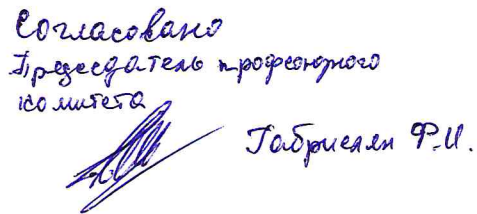 Согласовано
Председатель профсоюзного
комитета
Габриелян Ф.И.